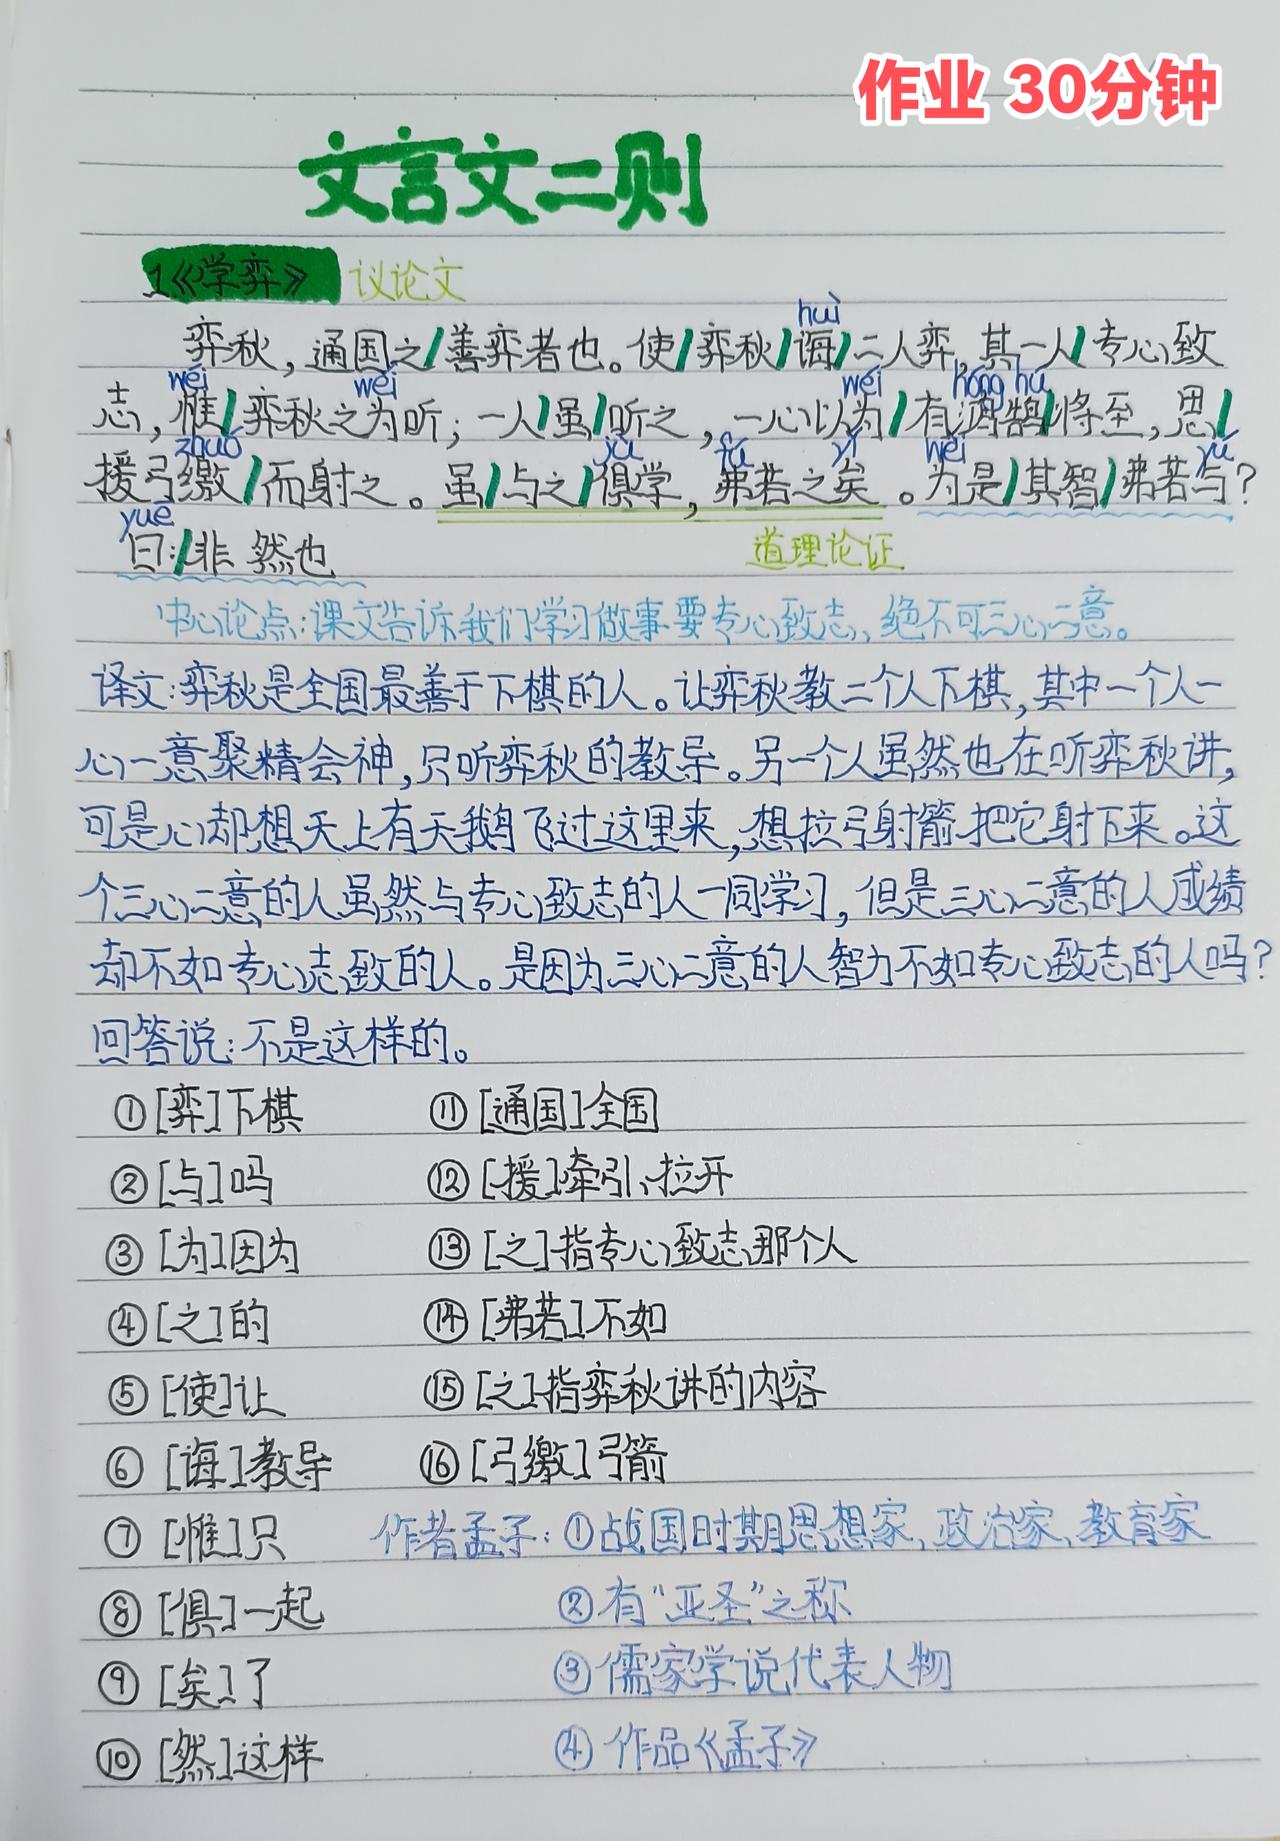 作业 30分钟
文言文二则
1《学弈》 议论文
huì
弈秋，通国之/善弈者也。使/弈秋/诲/二人弈，其一人/专心致
wéi wéi wéi hóng hú
志，惟/弈秋之为听；一人/虽/听之，一心以为/有鸿鹄/将至，思/
zhuó jù fú yǐ wèi yú
援弓缴/而射之。虽/与之/俱学，弗若之矣。为是/其智/弗若与？
yuē
曰：/非然也
道理论证
中心论点：课文告诉我们学习做事要专心致志、绝不可三心二意。
译文：弈秋是全国最善于下棋的人。让弈秋教二个人下棋，其中一个人一
心一意聚精会神，只听弈秋的教导。另一个人虽然也在听弈秋讲，
可是心却想天上有天鹅飞过这里来，想拉弓射箭把它射下来。这
个三心二意的人虽然与专心致志的人一同学习，但是三心二意的人成绩
却不如专心志致的人。是因为三心二意的人智力不如专心致志的人吗？
回答说：不是这样的。
①[弈]下棋 ⑪[通国]全国
②[与]吗 ⑫[援]牵引、拉开
③[为]因为 ⑬[之]指专心致志那个人
④[之]的 ⑭[弗若]不如
⑤[使]让 ⑮[之]指弈秋讲的内容
⑥[诲]教导 ⑯[弓缴]弓箭
⑦[惟]只 作者孟子：①战国时期思想家、政治家、教育家
⑧[俱]一起 ②有“亚圣”之称
⑨[矣]了 ③儒家学说代表人物
⑩[然]这样 ④作品《孟子》